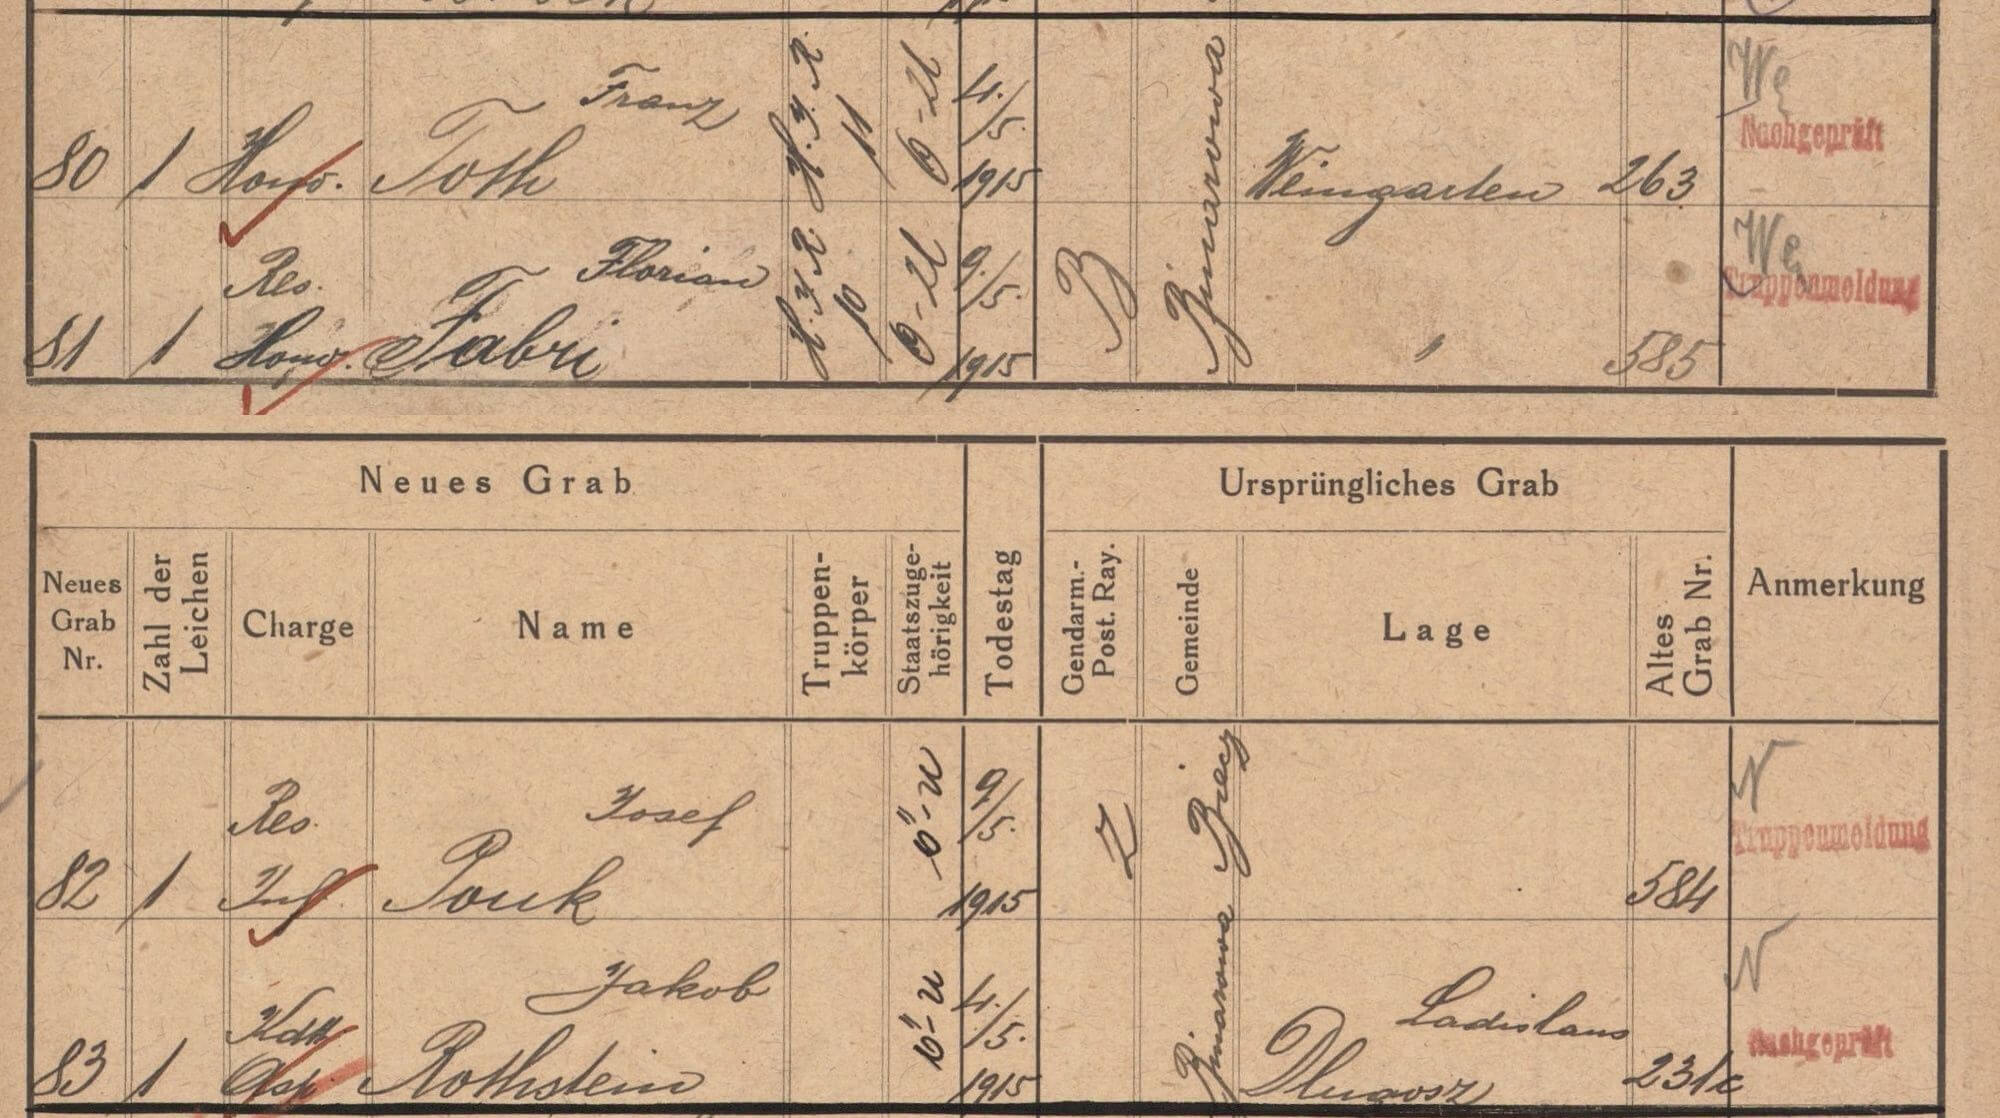 Franz
80 1 Honv. Toth H. I. R. 11 Ö-U 4./5. 1915 Weingarten 263 We Nachgeprüft
Res. Florian
81 1 Honv. Fabri H. I. R. 10 Ö-U 9./5. 1915 B Binarowa Weingarten " 585 We Truppenmeldung
Neues Grab Ursprüngliches Grab
Neues Grab Nr. Zahl der Leichen Charge Name Truppen-körper Staatszuge-hörigkeit Todestag Gendarm.-Post. Ray. Gemeinde Lage Altes Grab Nr. Anmerkung
Res. Josef
82 1 Inf. Pouk Ö-U 9/5. 1915 Z Biecz 584 N Truppenmeldung
Kdtt Jakob Ladislaus
83 1 Asp. Rothstein Ö-U 4./5. 1915 Binarowa Dlugosz 231c N Nachgeprüft